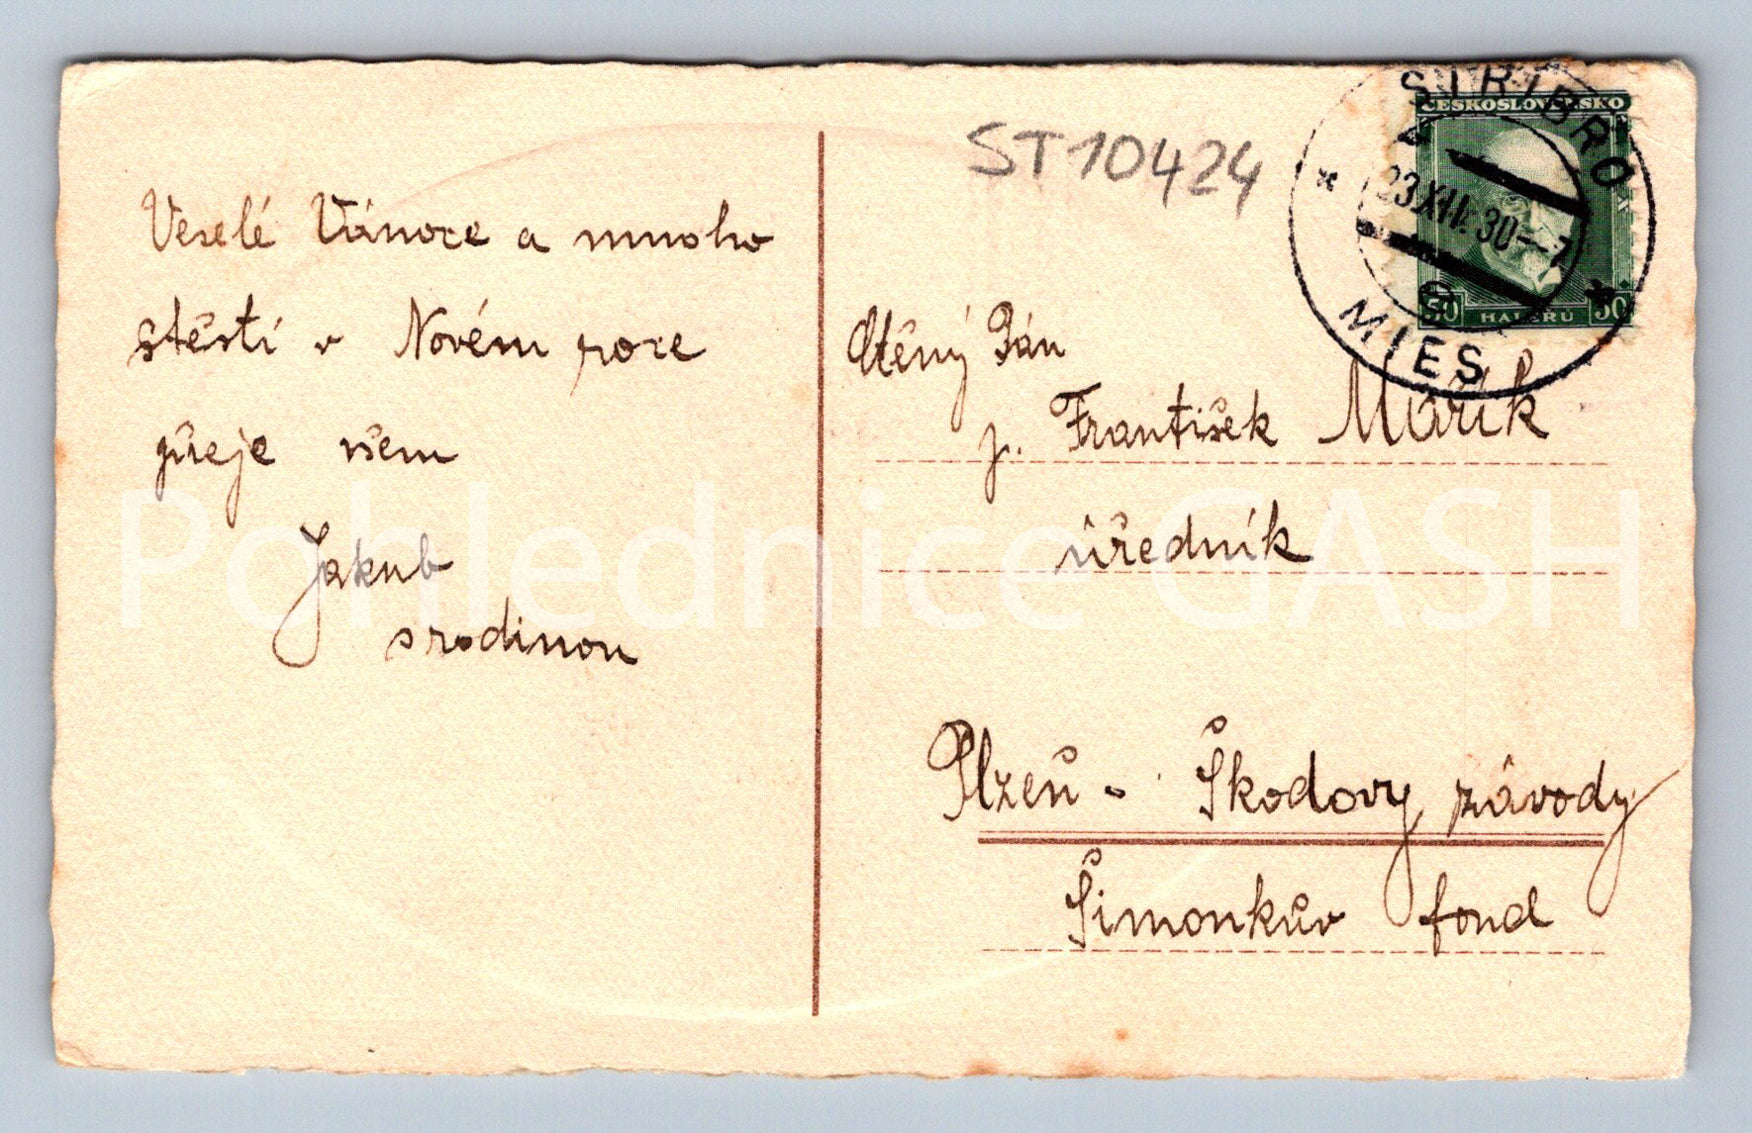 Veselé Vánoce a mnoho
štěstí v Novém roce
přeje všem
Jakub
s rodinou
ST10424
Ctěný Pán
p. František Mařík
úředník
Plzeň - Škodovy závody
Šimonkův fond
STŘÍBRO
23.XII.30-7
MIES
ČESKOSLOVENSKO
50 HALÉŘŮ 50
Pohlednice GASH